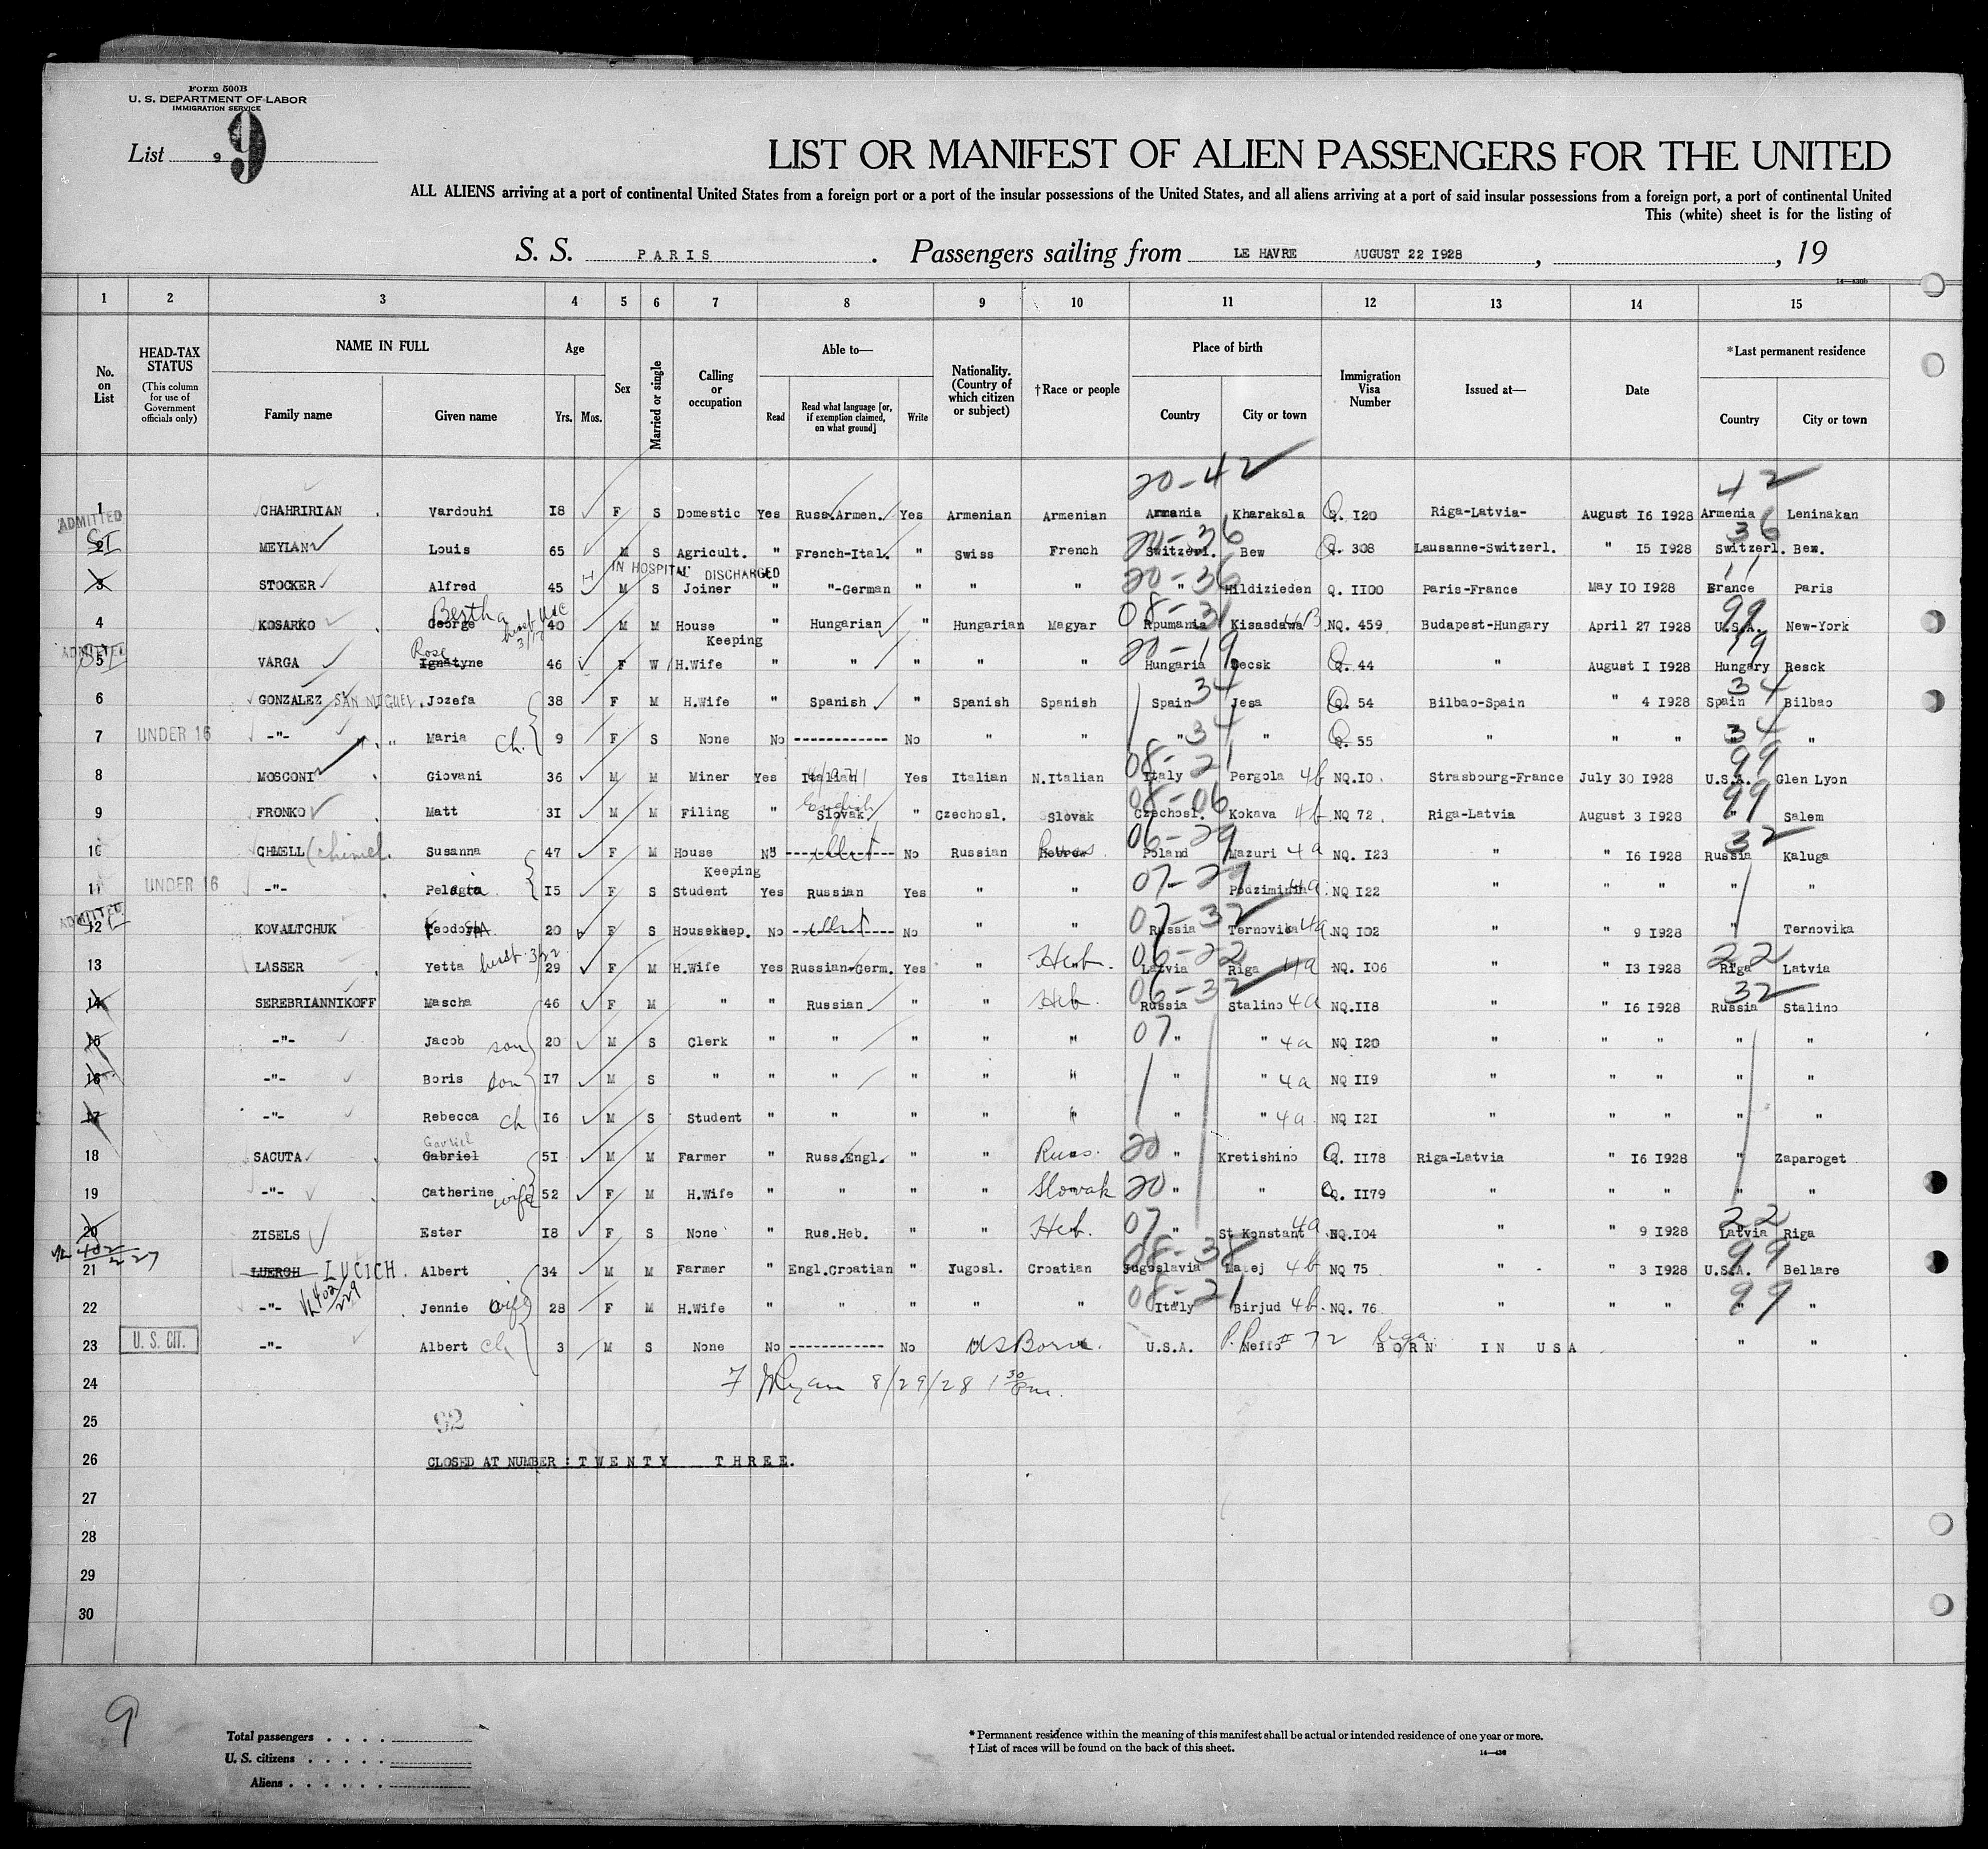 Form 500B
U. S. DEPARTMENT OF LABOR
IMMIGRATION SERVICE
List 9 9
LIST OR MANIFEST OF ALIEN PASSENGERS FOR THE UNITED
ALL ALIENS arriving at a port of continental United States from a foreign port or a port of the insular possessions of the United States, and all aliens arriving at a port of said insular possessions from a foreign port, a port of continental United
This (white) sheet is for the listing of
S. S. PARIS . Passengers sailing from LE HAVRE AUGUST 22 I928 , , 19
1 2 3 4 5 6 7 8 9 10 11 12 13 14 15
No. on List
HEAD-TAX STATUS (This column for use of Government officials only)
NAME IN FULL Family name Given name
Age Yrs. Mos.
Sex
Married or single
Calling or occupation
Able to— Read Read what language [or, if exemption claimed, on what ground] Write
Nationality. (Country of which citizen or subject)
†Race or people
Place of birth Country City or town
Immigration Visa Number
Issued at—
Date
*Last permanent residence Country City or town
20-42 42
1 CHAHRIRIAN Vardouhi I8 F S Domestic Yes Russ.Armen. Yes Armenian Armenian Armania Kharakala Q. I20 Riga-Latvia- August I6 I928 Armenia Leninakan
ADMITTED SI
20-36 36
2 MEYLAN Louis 65 M S Agricult. " French-Ital. " Swiss French Switzerl. Bew Q. 308 Lausanne-Switzerl. " I5 I928 Switzerl. Bew.
IN HOSPITAL DISCHARGED
20-36
3 STOCKER Alfred 45 M S Joiner " "-German " " " " Hildizieden Q. II00 Paris-France May I0 I928 France Paris
Bertha 08-31 99
4 KOSARKO George 40 M M House Keeping " Hungarian " Hungarian Magyar Roumania Kisasdawa NQ. 459 Budapest-Hungary April 27 I928 U.S.A. New-York
ADMITTED SI
Rose 20-19 19
5 VARGA Ignatyne 46 F W H.Wife " " " " " Hungaria Recsk Q. 44 " August I I928 Hungary Resck
34 34
6 GONZALEZ SAN MIGUEL Jozefa 38 F M H.Wife " Spanish " Spanish Spanish Spain Jesa Q. 54 Bilbao-Spain " 4 I928 Spain Bilbao
34 34
7 UNDER 16 -"- " Maria ch. 9 F S None No ------------ No " " " " Q. 55 " " " " "
08-21 99
8 MOSCONI Giovani 36 M M Miner Yes Italian Yes Italian N.Italian Italy Pergola 4b NQ.I0. Strasbourg-France July 30 I928 U.S.A. Glen Lyon
English 08-06 99
9 FRONKO Matt 3I M M Filing " Slovak " Czechosl. Slovak Czechosl. Kokava 4b NQ 72. Riga-Latvia August 3 I928 " Salem
06-29 32
10 CHMELL (Chimel. Susanna 47 F M House Keeping No ------------ No Russian Hebrew Poland Mazuri 4a NQ. I23 " " I6 I928 Russia Kaluga
07-29
11 UNDER 16 -"- Pelagia I5 F S Student Yes Russian Yes " " Podziminin 4a NQ I22 " " " " "
ADMITTED SI
07-32
12 KOVALTCHUK 20 F S Housekeep. No ------------ No " " Russia Ternovika 4a NQ I02 " " 9 I928 " Ternovika
06-22 22
13 LASSER Yetta 29 F M H.Wife Yes Russian-Germ. Yes " Heb. Latvia Riga 4a NQ. I06 " " I3 I928 Riga Latvia
06-32 32
14 SEREBRIANNIKOFF Mascha 46 F M " " Russian " " Heb. Russia Stalino 4a NQ.II8 " " I6 I928 Russia Stalino
15 -"- Jacob son 20 M S Clerk " " " " " 07 " " 4a NQ I20 " " " " "
16 -"- Boris son I7 M S " " " " " " " " 4a NQ II9 " " " " "
17 -"- Rebecca ch I6 M S Student " " " " " " " 4a NQ I2I " " " " "
Gavriel
18 SACUTA Gabriel 5I M M Farmer " Russ.Engl. " " Russ. 20 " Kretishino Q. II78 Riga-Latvia " I6 I928 " Zaparoget
19 -"- Catherine wife 52 F M H.Wife " " " " Slowak 20 " " Q. II79 " " " " "
22
20 ZISELS Ester I8 F S None " Rus.Heb. " " Heb. 07 " St Konstant 4a NQ.I04 " 9 I928 Latvia Riga
08-38 99
21 LUERCH LUCICH. Albert 34 M M Farmer " Engl.Croatian " Jugosl. Croatian Jugoslavia Matej 4b NQ 75 " " 3 I928 U.S.A. Bellare
08-21 99
22 -"- Jennie wife 28 F M H.Wife " " " " " Italy Birjud 4b. NQ. 76 " " " " "
23 U. S. CIT. -"- Albert ch 3 M S None No ------------ No US Born. U.S.A. Neffo P.P. # 72 Riga BORN IN USA " "
24 Ryan 8/29/28 1 30 pm.
25 92
26 CLOSED AT NUMBER : TWENTY THREE.
27
28
29
30
9
Total passengers
U. S. citizens
Aliens
* Permanent residence within the meaning of this manifest shall be actual or intended residence of one year or more.
† List of races will be found on the back of this sheet.
14—430